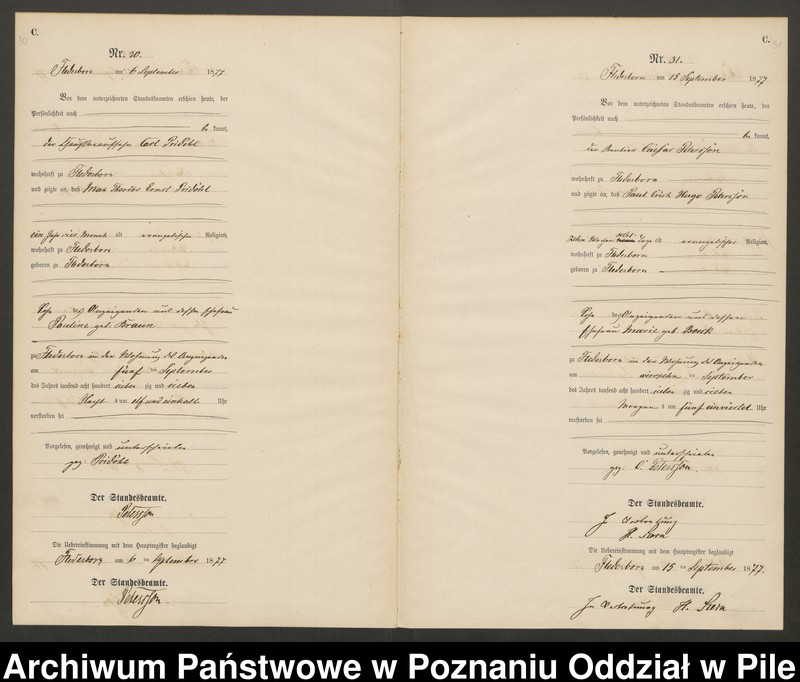 C.
Nr. 30.
Flederborn am 6 September 1877
Vor dem unterzeichneten Standesbeamten erschien heute, der
Persönlichkeit nach
be kannt,
der Carl Pridöhl
wohnhaft zu Flederborn
und zeigte an, daß Max Theodor Ernst Pridöhl
ein Jahr vier Monat alt evangelischer Religion,
wohnhaft zu Flederborn
geboren zu Flederborn
Sohn des Anzeigenden und dessen Ehefrau
Pauline geb. Braun
zu Flederborn in der Wohnung des Anzeigenden
am fünf ten September
des Jahres tausend acht hundert sieben zig und sieben
Nacht s um elf und einhalb Uhr
verstorben sei
Vorgelesen, genehmigt und unterschrieben
gez: Pridöhl
Der Standesbeamte.
Petersson
Die Uebereinstimmung mit dem Hauptregister beglaubigt
Flederborn am 6 ten September 1877.
Der Standesbeamte.
Petersson.
C.
Nr. 31.
Flederborn am 15 September 1877
Vor dem unterzeichneten Standesbeamten erschien heute, der
Persönlichkeit nach
be kannt,
der Rentier Caesar Petersson
wohnhaft zu Flederborn
und zeigte an, daß Paul Erich Hugo Petersson
zehn Wochen acht Tage alt evangelischer Religion,
wohnhaft zu Flederborn
geboren zu Flederborn
Sohn des Anzeigenden und dessen
Ehefrau Marie geb.
zu Flederborn in der Wohnung des Anzeigenden
am vierzehn ten September
des Jahres tausend acht hundert sieben zig und sieben
Morgen s um fünf einviertel Uhr
verstorben sei
Vorgelesen, genehmigt und unterschrieben
gez: C. Petersson.
Der Standesbeamte.
In Vertretung
H.
Die Uebereinstimmung mit dem Hauptregister beglaubigt
Flederborn am 15 ten September 1877.
Der Standesbeamte.
In Vertretung H.
Archiwum Państwowe w Poznaniu Oddział w Pile